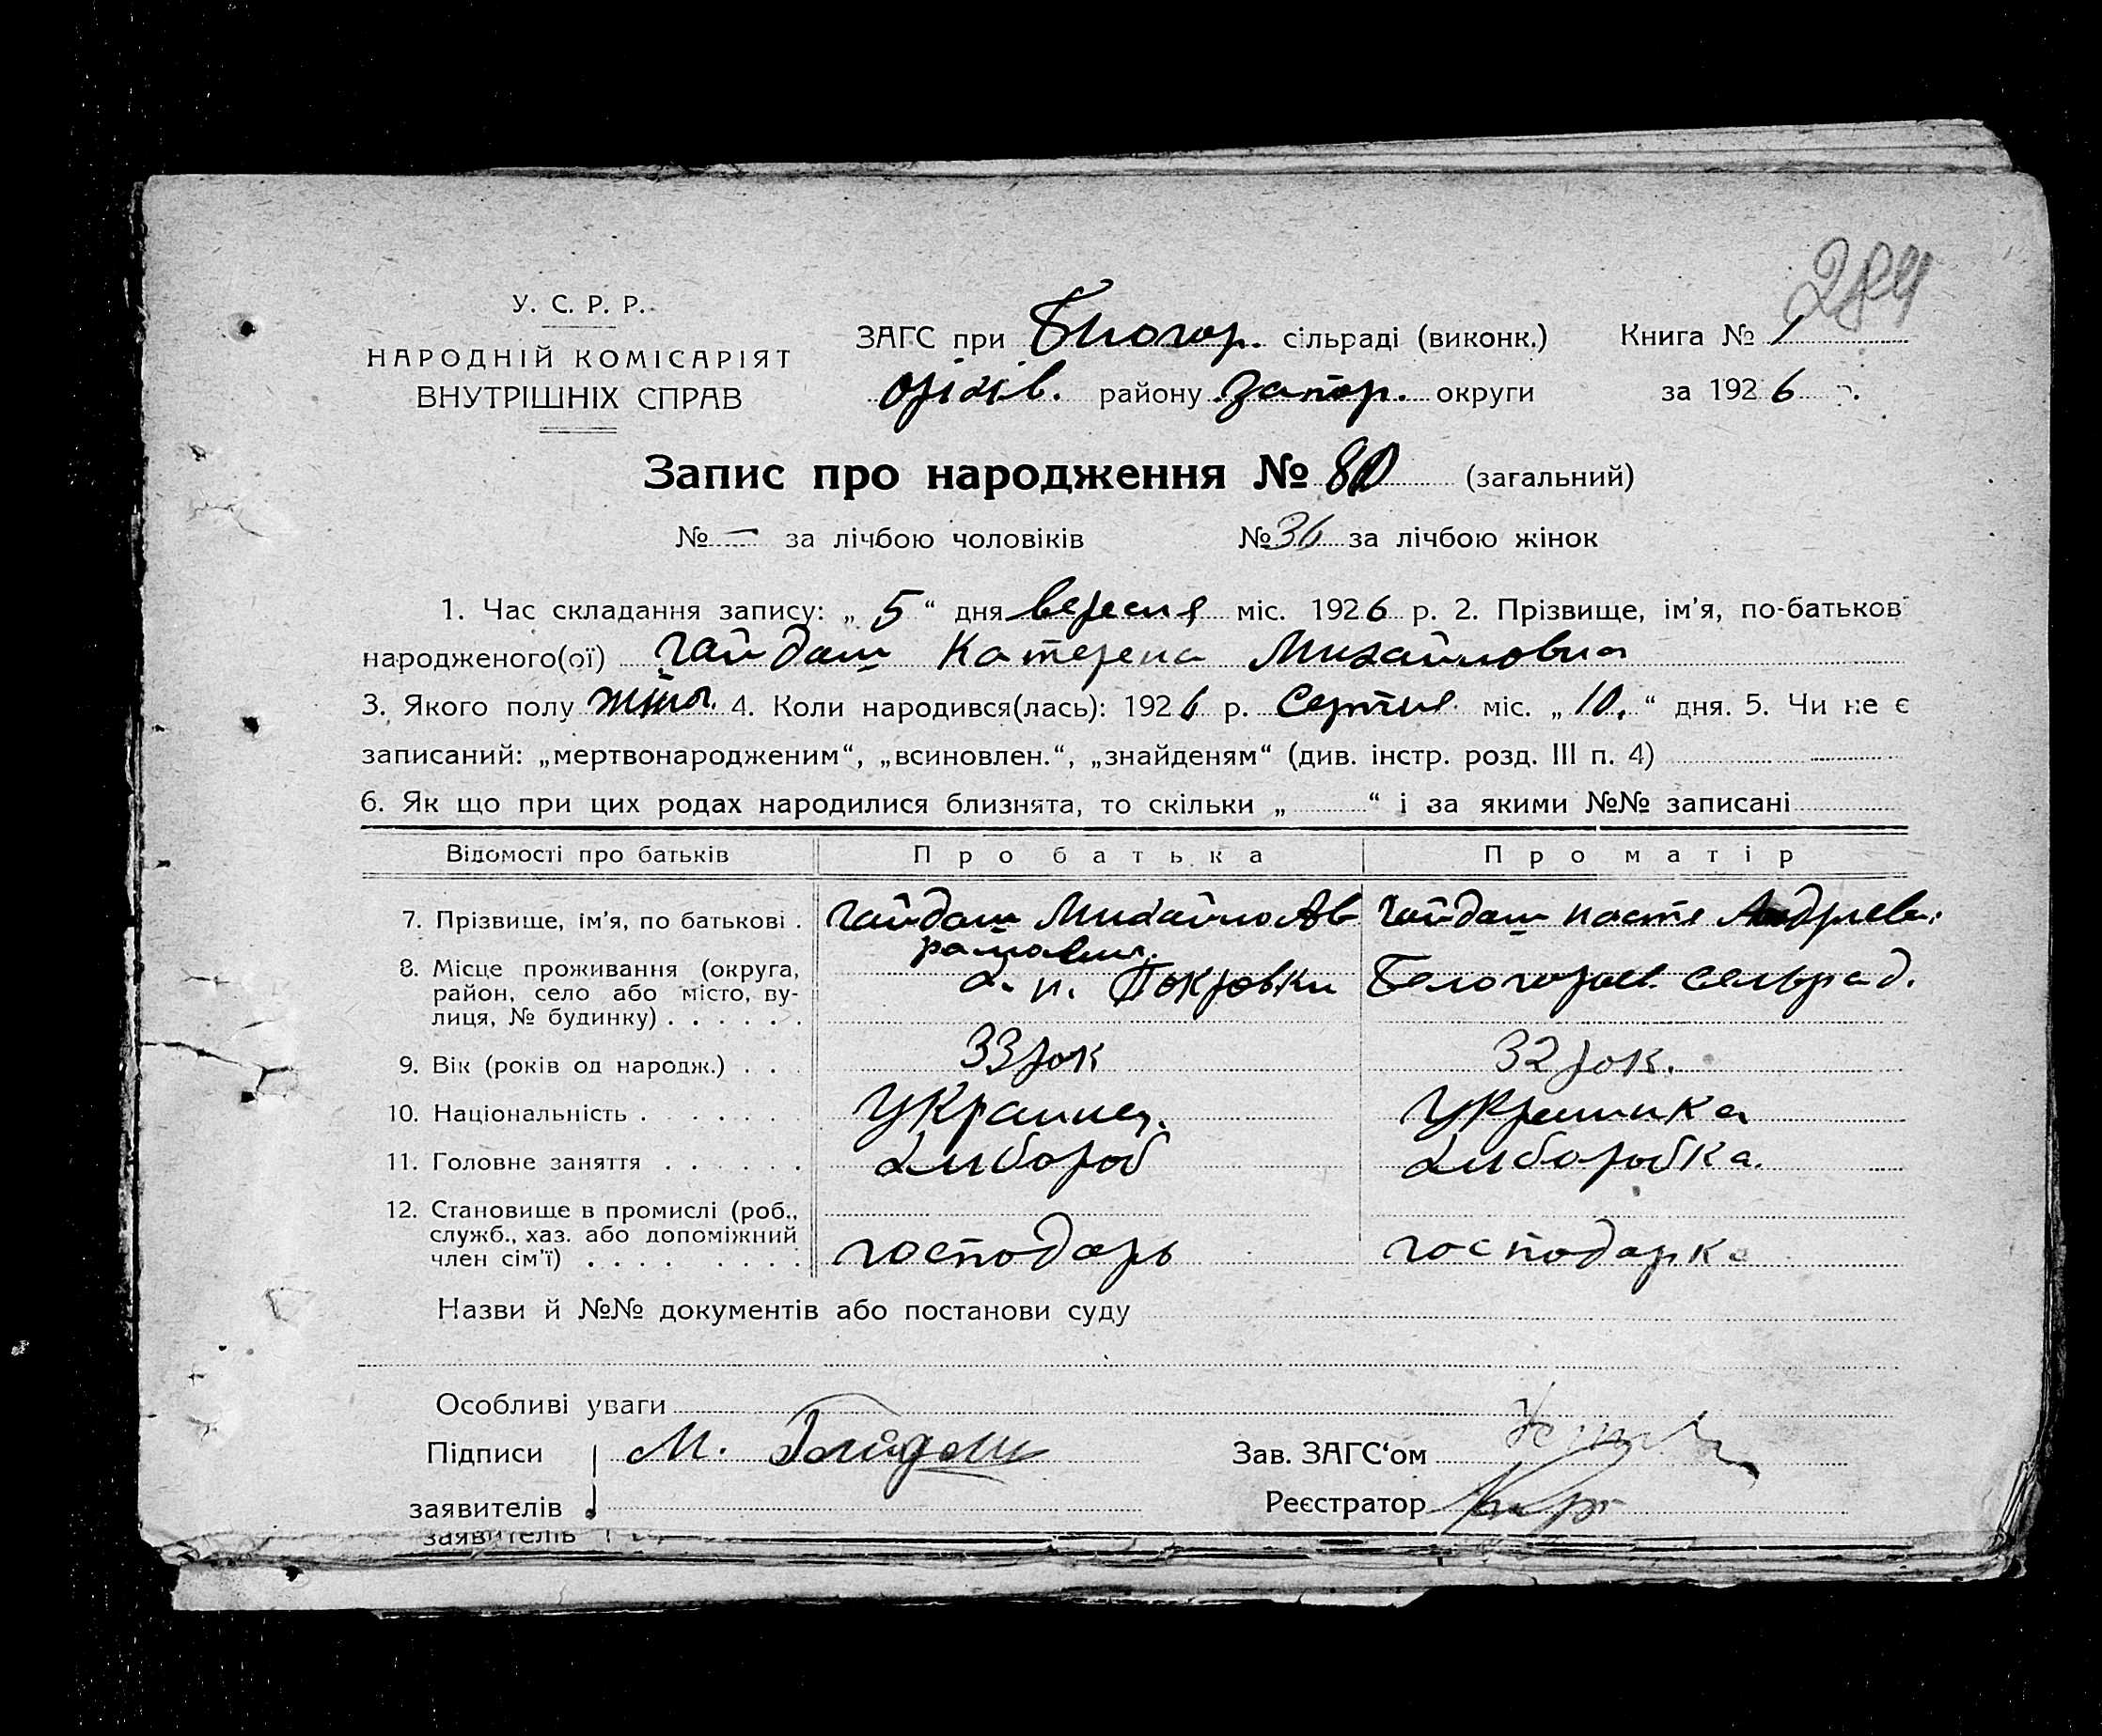 284
У. С. Р. Р.
НАРОДНІЙ КОМІСАРІЯТ
ВНУТРІШНІХ СПРАВ
ЗАГС при Білогор. сільраді (виконк.) Книга № 1
Оріхів. району Запор. округи за 1926 р.
Запис про народження № 80 (загальний)
№ — за лічбою чоловіків № 36 за лічбою жінок
1. Час складання запису: „ 5 “ дня вересня міс. 1926 р. 2. Прізвище, ім’я, по-батьков
народженого(ої) Гайдаш Катерена Михайловна
3. Якого полу 4. Коли народився(лась): 1926 р. Серпня міс. „ 10. “ дня. 5. Чи не є
записаний: „мертвонародженим“, „всиновлен.“, „знайденям“ (див. інстр. розд. III п. 4)
6. Як що при цих родах народилися близнята, то скільки „ “ і за якими №№ записані
Відомості про батьків Про батька Про матір
7. Прізвище, ім’я, по батькові . Гайдаш Михайло Ав Гайдаш Настя Андрієв.
рамович.
8. Місце проживання (округа, район, село або місто, вулиця, № будинку) . . . . . . х. н. Покровки Белогорев. сельрад.
9. Вік (років од народж.) . . . 33 рок 32 рок.
10. Національність . . . . . . Украинец. Украинка
11. Головне заняття . . . . . . хлібороб хліборобка.
12. Становище в промислі (роб., служб., хаз. або допоміжний член сім’ї) . . . . . . . . господарь господарка
Назви й №№ документів або постанови суду
Особливі уваги
Підписи М. Гайдаш Зав. ЗАГС‘ом
заявителів Реєстратор
заявителів